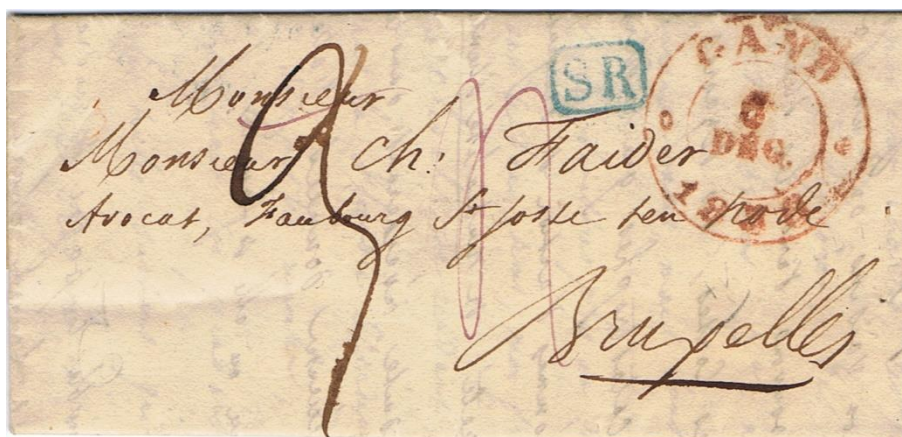 SR
GAND
DEC.
Monsieur
Monsieur Ch: Faider
Avocat, Faubourg St Josse ten node
Bruxelles